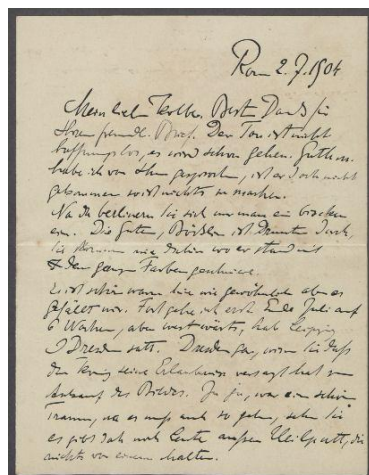 Rom 2.7.1904
Mein lieber Beste Dank für
Ihren freundl. Brief. Der Ton ist nicht
hoffnungslos, es wird schon gehen.
habe ich von Ihm gesprochen, ist er doch nicht
gekommen so ist nichts zu machen.
Na da berlinern Sie sich nur man ein bischen
ein. Die guten, Böcklin ist
Sie kommen nie dahin wo er stand mit
den ganzen Farben
Es ist schön warm hier wie gewöhnlich aber es
gefällt mir. Fort gehe ich erst Ende Juli auf
6 Wochen, aber westwärts, hab Leipzig
Dresden satt. Dresden gar, wissen Sie daß
der König seine Erlaubniss versagt hat zum
Ankauf des Bildes. Ja ja, war ein schöner
Traum, na es muß auch so gehen, sehen Sie
es giebt doch noch Leute außer die
nichts von einem halten.